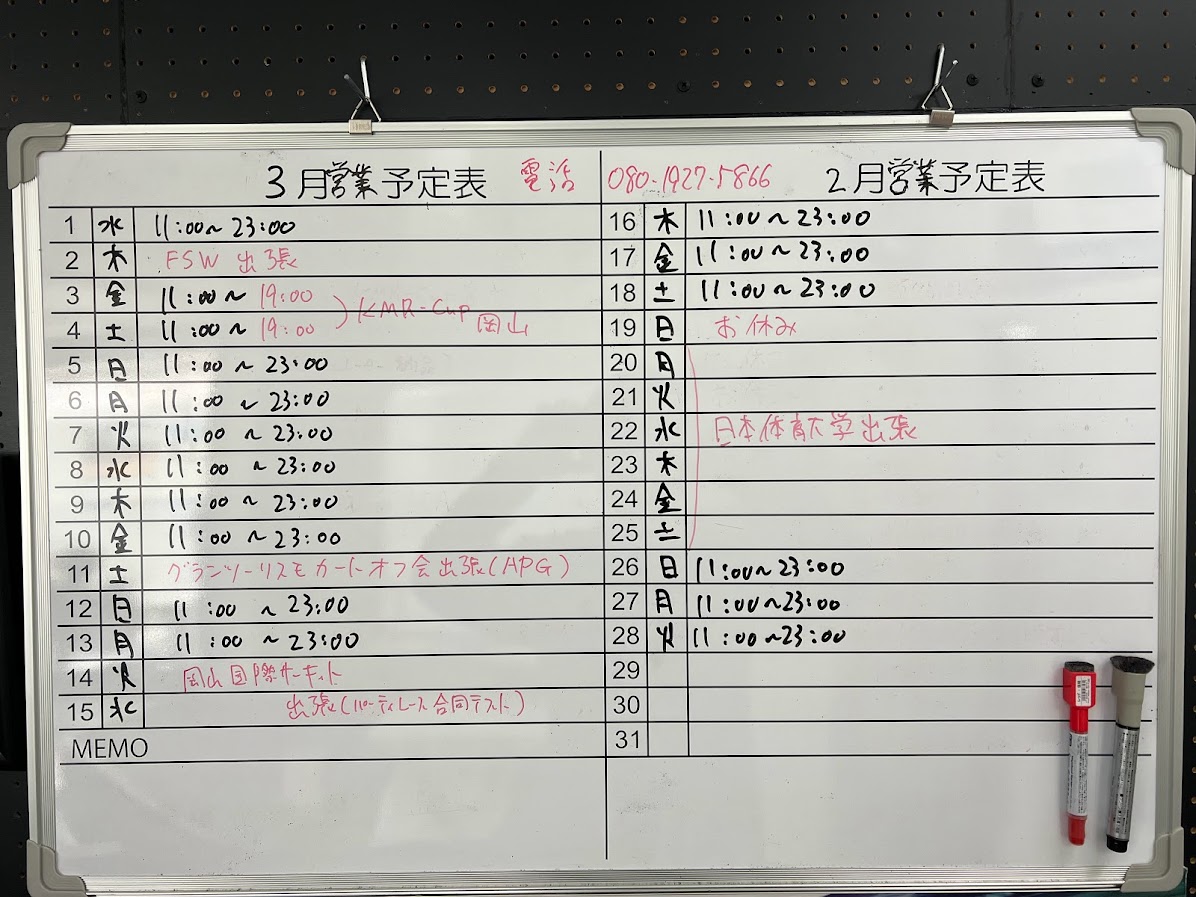 3月営業予定表 電話
1 水 11:00~23:00
2 木 FSW 出張
3 金 11:00~19:00
4 土 11:00~19:00
KMR-Cup 岡山
5 日 11:00~23:00
6 月 11:00~23:00
7 火 11:00~23:00
8 水 11:00~23:00
9 木 11:00~23:00
10 金 11:00~23:00
11 土 グランツーリスモカートオフ会出張(APG)
12 日 11:00~23:00
13 月 11:00~23:00
14 火 岡山国際サーキット
15 水 出張(パーティレース合同テスト)
MEMO
080-1927-5866 2月営業予定表
16 木 11:00~23:00
17 金 11:00~23:00
18 土 11:00~23:00
19 日 お休み
20 月
21 火
22 水 日本体育大学出張
23 木
24 金
25 土
26 日 11:00~23:00
27 月 11:00~23:00
28 火 11:00~23:00
29
30
31